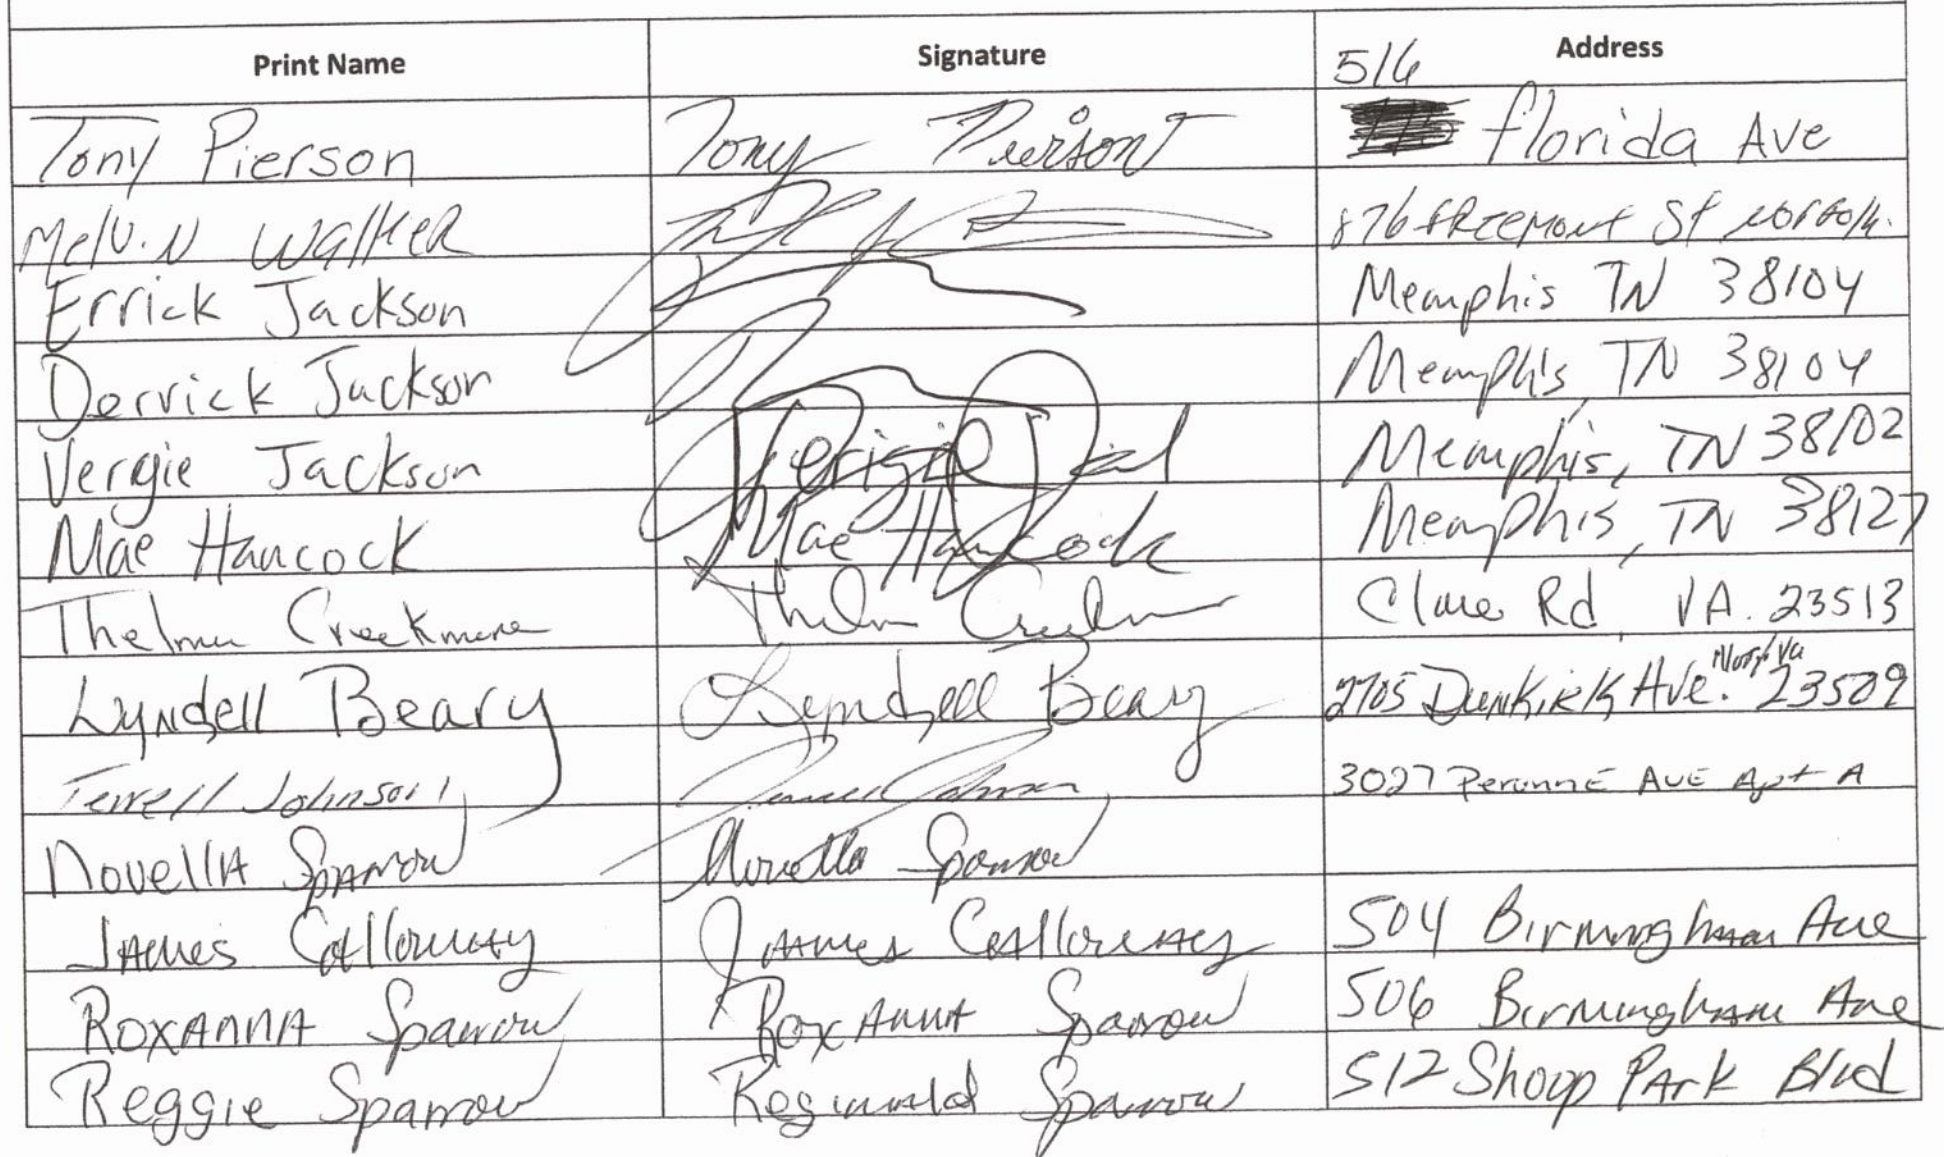 Print Name Signature Address
516
Tony Pierson Tony Pierson florida Ave
Melvin Walker 876 freemont St Norfolk.
Errick Jackson Memphis TN 38104
Derrick Jackson Memphis, TN 38104
Vergie Jackson Memphis, TN 38102
Mae Hancock Mae Hancock Memphis, TN 38127
Thelma Creekmore Thelma Rd, VA. 23513
Norf, Va
Lyndell Beary Lyndell Beary 2705 Dunkirk Ave. 23509
Terrell Johnson Terrell Johnson 3027 Peronne AVE Apt A
Novella Sparrow Novella Sparrow
James Calloway James Calloway 504 Birmingham Ave
Roxanna Sparrow Roxanna Sparrow 506 Birmingham Ave
Reggie Sparrow Reginald Sparrow 512 Shoop Park Blvd